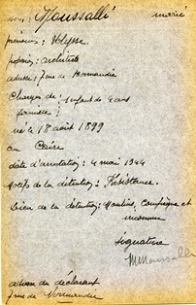 nom: Moussalli marié
prénoms: Ulysse
profession: architecte
adresse: 7 rue de Normandie
Charges de famille: 1 enfant de 4 ans
né le 18 août 1899
au Caire
date d'arrestation: 4 mai 1944
motifs de la détention: Résistance
lieu de la détention: Moulins, Compiègne et
inconnu
signature
Moussalli
adresse du déclarant
7 rue de Normandie